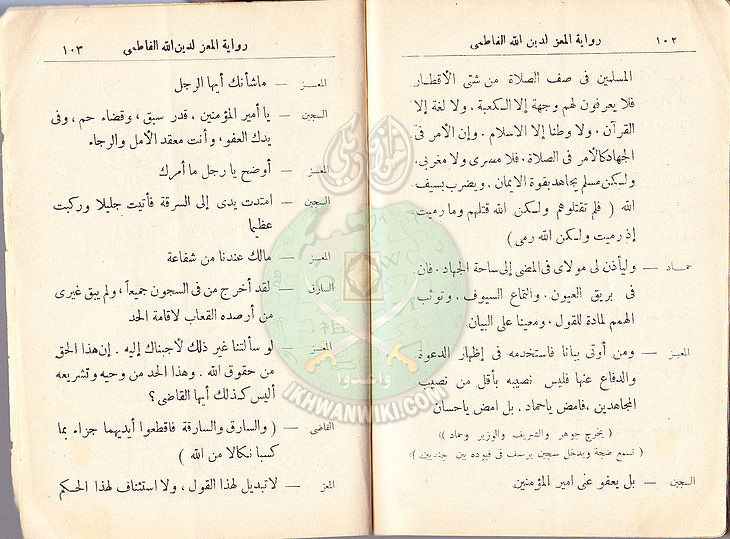 ١٠٢ رواية المعز لدين الله الفاطمى
المسلمين فى صف الصلاة من شتى الأقطار
فلا يعرفون لهم وجهة إلا الكعبة . ولا لغة إلا
القرآن . ولا وطنا إلا الاسلام . وإن الأمر فى
الجهاد كالأمر فى الصلاة . فلا مسرى ولا مغربى .
ولكن مسلم يجاهد بقوة الايمان . ويضرب بسيف
الله ( فلم تقتلوهم ولكن الله قتلهم وما رميت
إذ رميت ولكن الله رمى )
حماد — وليأذن لى مولاى فى المضى إلى ساحة الجهاد . فان
فى بريق العيون . والتماع السيوف . وتوثب .
الهمم لمادة للقول . ومعينا على البيان
المعز — ومن أوتى بيانا فاستخدمه فى إظهار الدعوة
والدفاع عنها فليس نصيبه بأقل من نصيب
المجاهدين ، فامض ياحماد . بل امض ياحسان
( يخرج جوهر والشريف والوزير وحماد )
( تسمع ضجة ويدخل سجين يرسف فى قيوده بين جنديين )
السجين — بل يعفو عنى امير المؤمنين
رواية المعز لدين الله الفاطمى ١٠٣
المعز — ماشأنك أيها الرجل
السجين — يا أمير المؤمنين . قدر سبق ، وقضاء حم ، وفى
يدك العفو ، وأنت معقد الأمل والرجاء
المعز — أوضح يا رجل ما أمرك
السجين — امتدت يدى إلى السرقة فأتيت جليلا وركبت
عظيما
المعز — مالك عندنا من شفاعة
السارق — لقد أخرج من فى السجون جميعا ، ولم يبق غيرى
من أرصده القعاب لاقامة الحد
المعز — لو سألتنا غير ذلك لأجبناك إليه . إن هذا الحق
من حقوق الله . وهذا الحد من وحيه وتشريعه
أليس كذلك أيها القاضى ؟
القاضى — ( والسارق والسارقة فاقطعوا أيديهما جزاء بما
كسبا نكالا من الله )
المعز — لا تبديل لهذا القول ، ولا استئناف لهذا الحكم
وأعدوا
IKHWANWIKI.COM